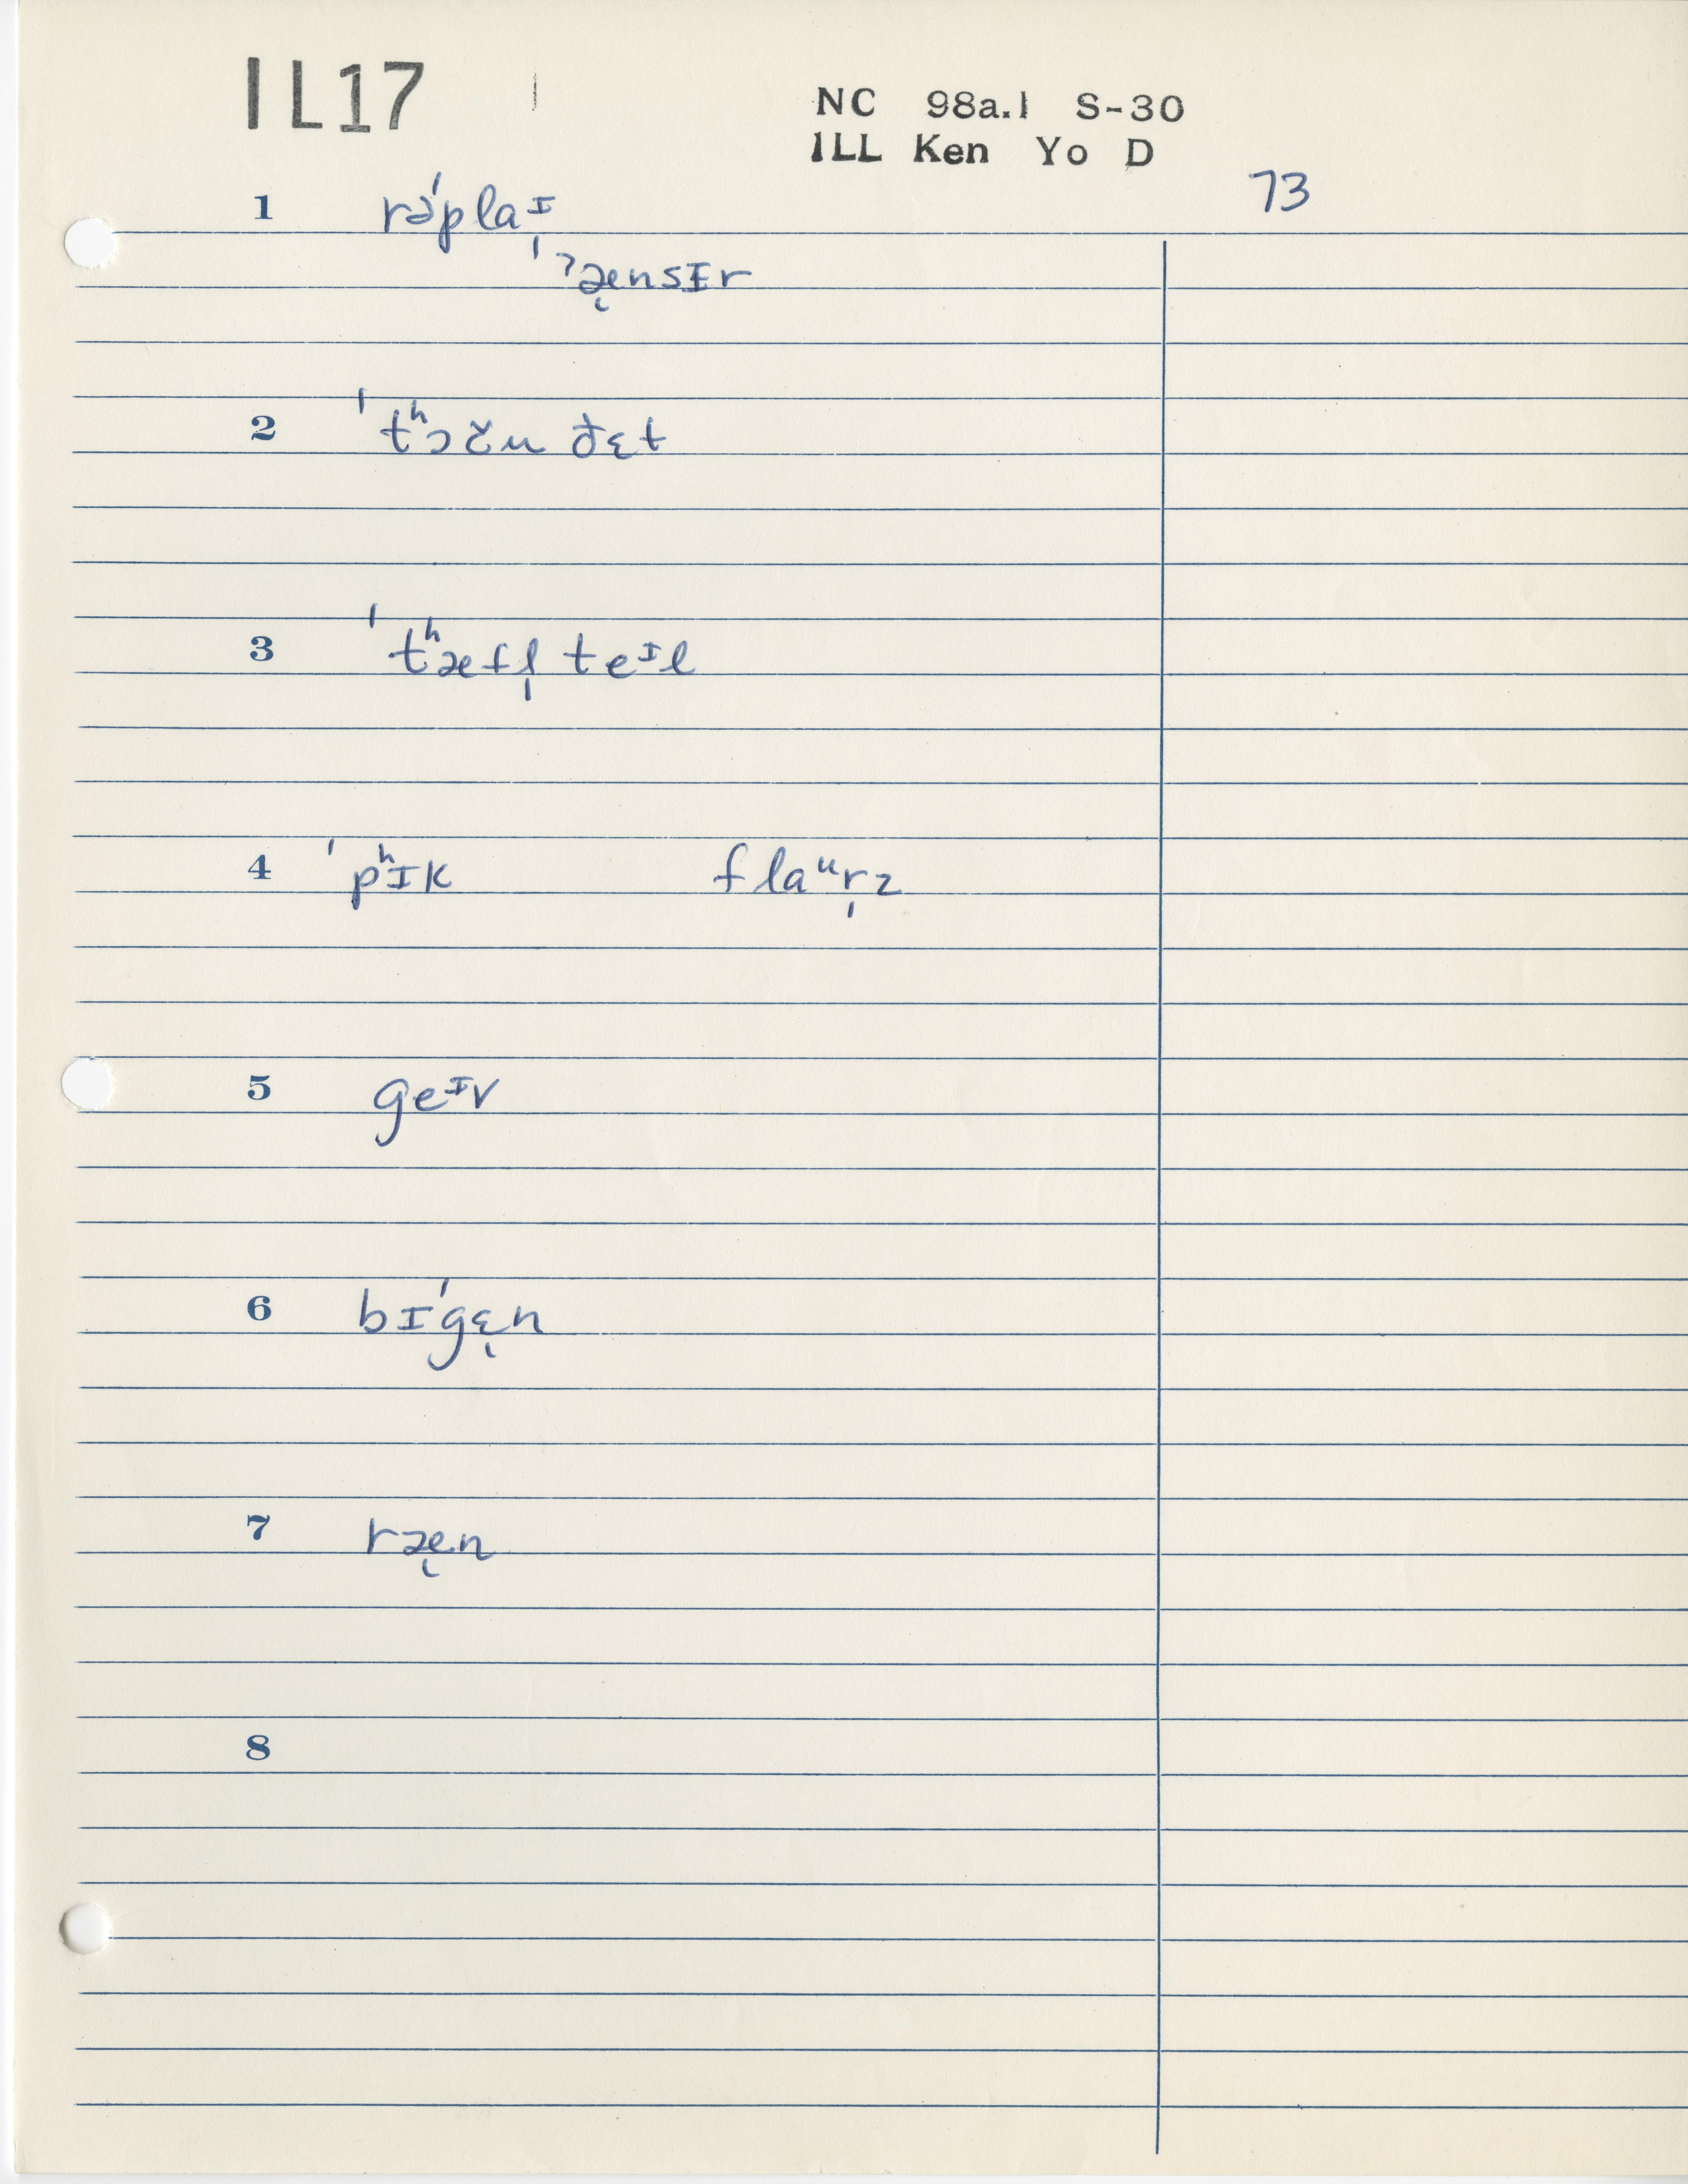 IL17
NC 98a.1 S-30
ILL Ken Yo D
73
1 rə'plaᶦ
'ˀæ̨nsɪr
2 'tʰɔču ðɛt
3 'tʰæfl̩ teᶦl
4 'pʰɪk flaᵘr̩z
5 geᶦv
6 bɪ'gɛ̨n
7 ræ̨n
8